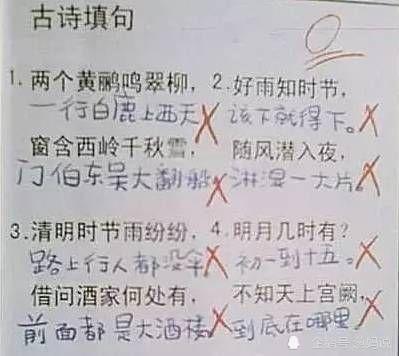 古诗填句
0
1. 两个黄鹂鸣翠柳， 2. 好雨知时节，
一行白鹿上西天 该下就得下。
窗含西岭千秋雪， 随风潜入夜，
门伯东吴大翻船 淋湿一大片。
3. 清明时节雨纷纷， 4. 明月几时有？
路上行人都没伞 初一到十五。
借问酒家何处有， 不知天上宫阙，
前面都是大酒楼 到底在哪里